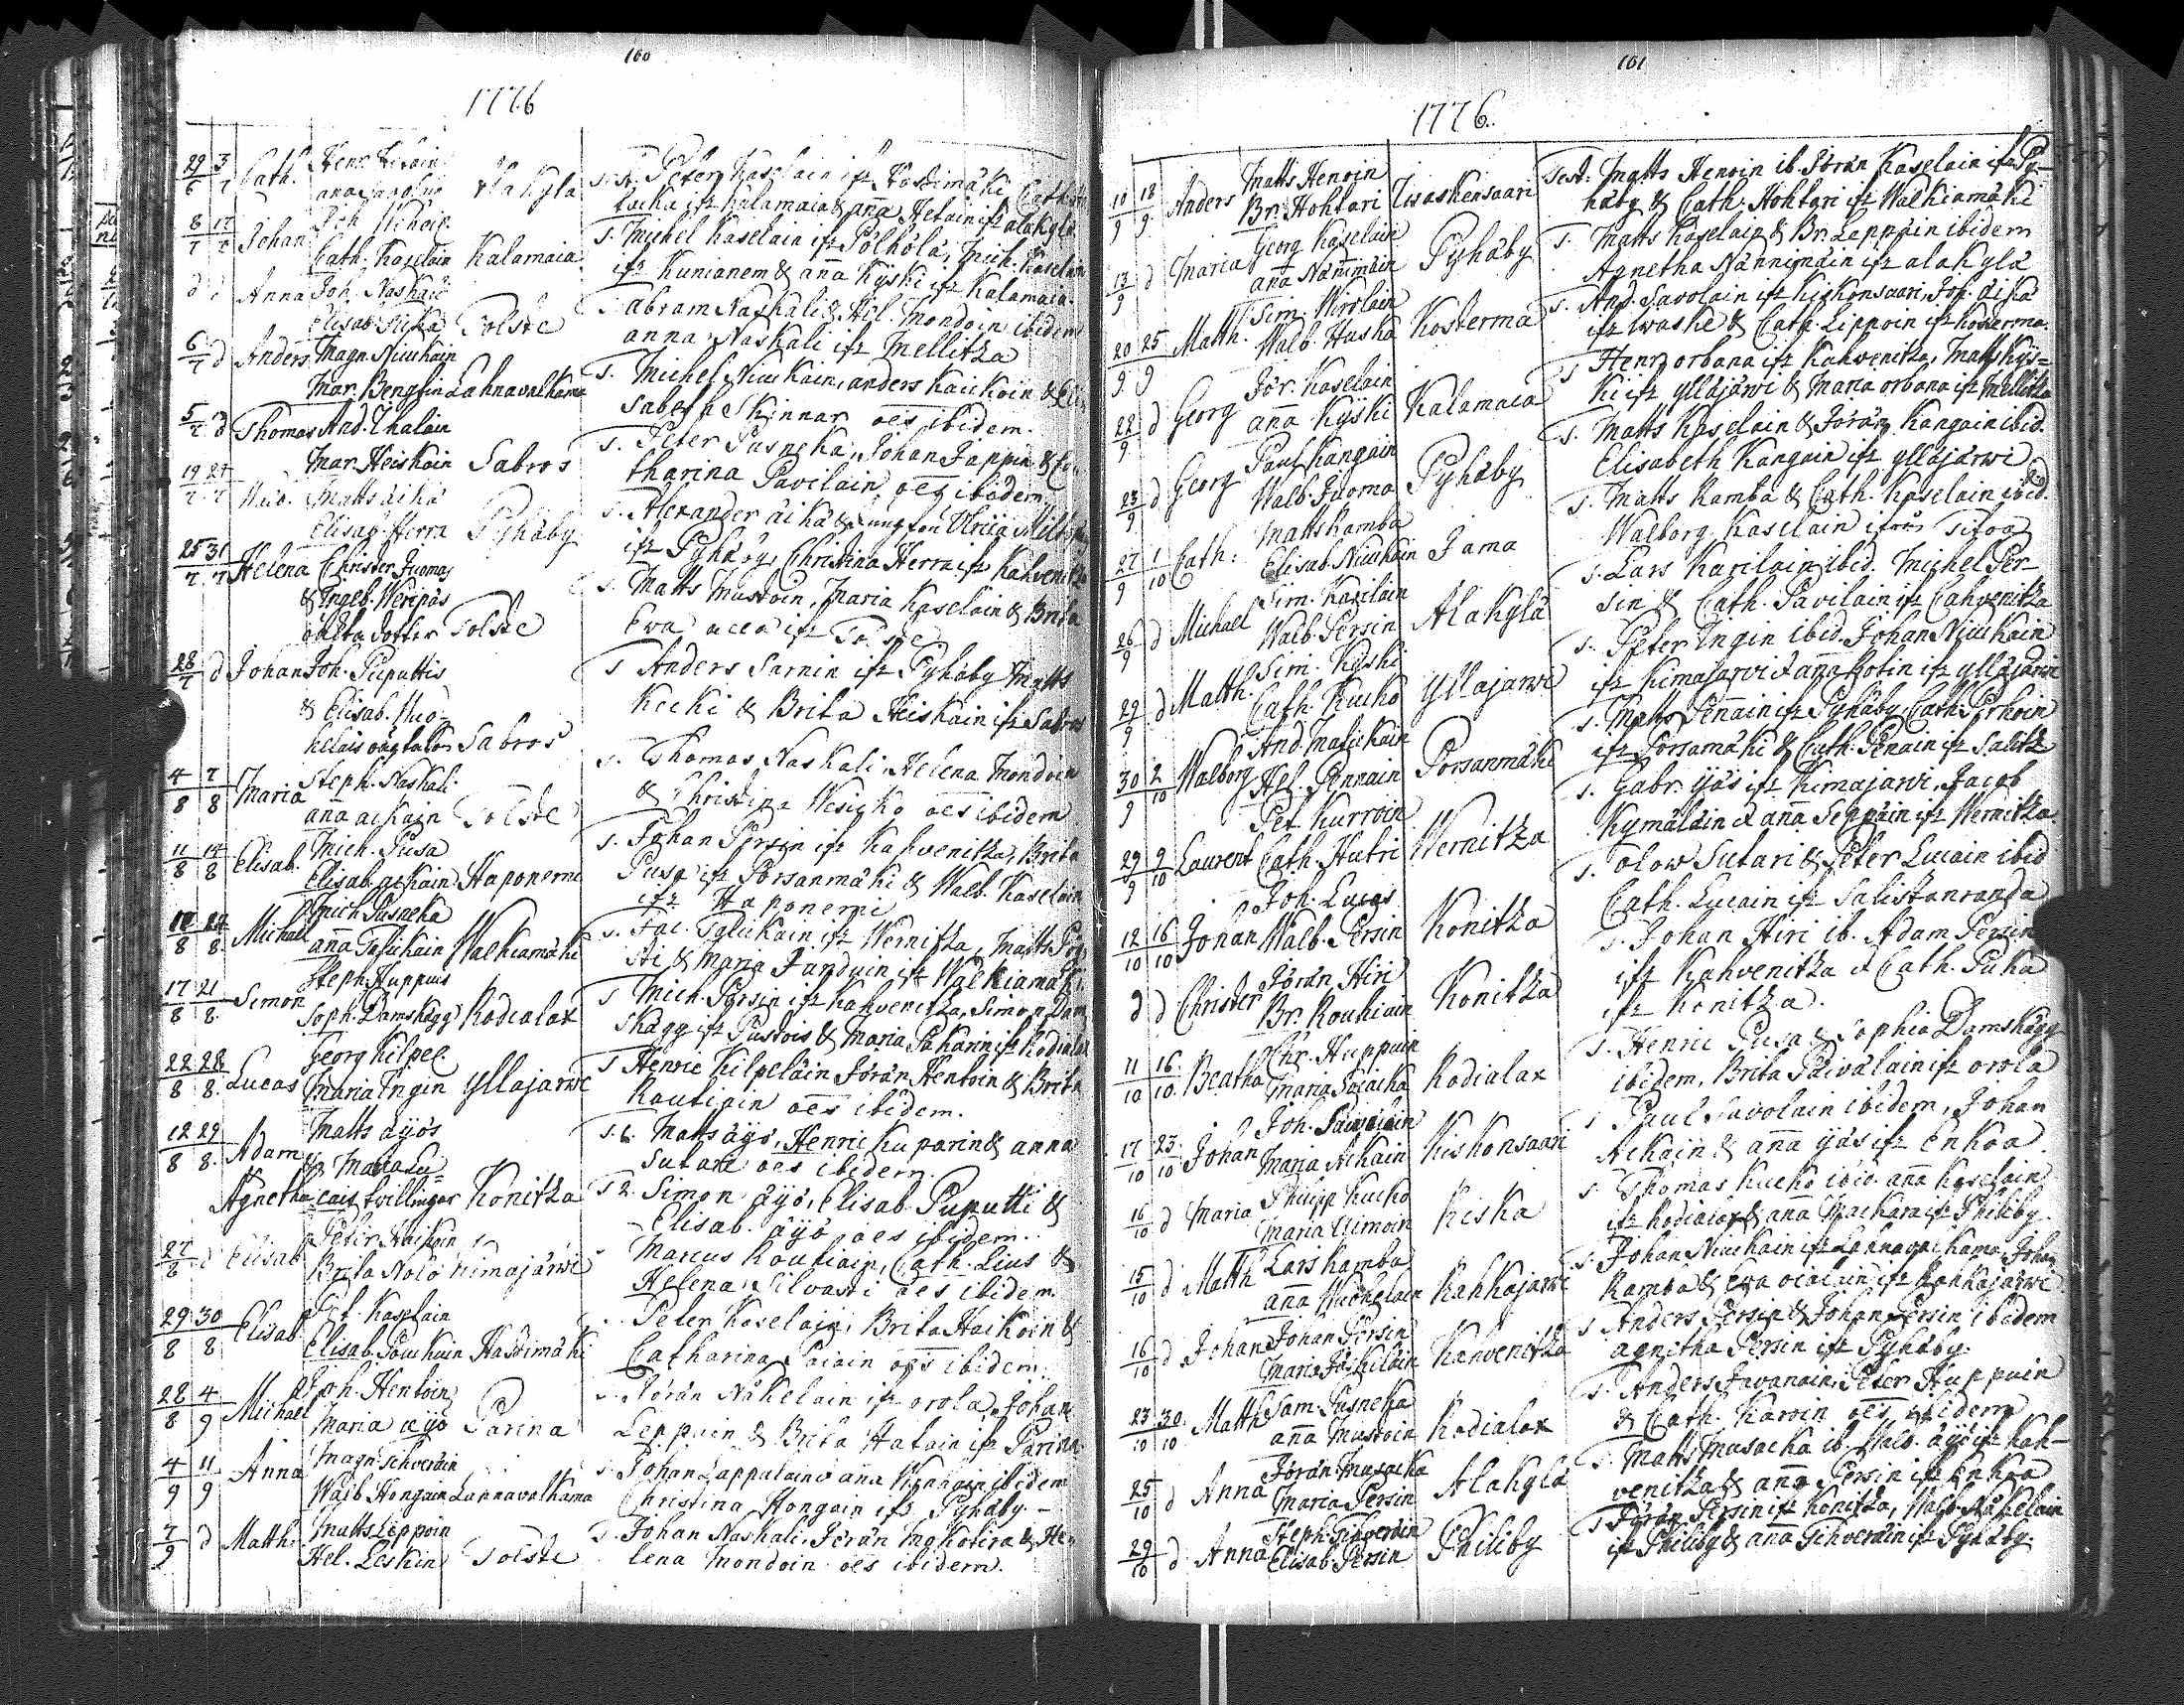 160
1776
29 3 Cath.
6 7 Alakylä Peter Kaselain ifr Hastimäki
ifr Kalamaia & anña Hetain ifr alakylä
8 17 Johan
7 7 Cath. Kaselain Kalamaia S. Michel Kaselain ifr Pölhölä, Mich. Kaselain
ifr Kunianem & anña Kyski ifr Kalamaia.
d d Anna Joh. Naskali
Elisab. Sicka Tolste abram Naskali & Hel. Mondoin ibidem
anna Naskali ifr Mellitza
6 d Anders Magn. Niuukain
7 Mar. Bengtin Lahnavalkama S. Michel Niuukain, anders Kaickoin & Eli
sabetha Skinnar oes ibidem.
5 d Thomas And. Ihalain
7 Mar. Heiskain Sabros S. Peter Pusneka, Johan Jappin & Ca
tharina Pavilain oes ibidem
19 24 Matts äikä
7 7 Elisab. Herra Pyhäby S. Alexander äikä
ifr Pyhäby, Christina Herra ifr Kahvenitza
25 31 Helena Christer Juomas
7 7 & Ingeb. Weripäs
äckta dotter Tolste S. Matts Mustoin, Maria Kaselain & Brita
Ewa ifr Tolste
28 d Johan Joh. Puputtis
7 & Elisab. Huo-
kelais Sabros S Anders Sarnin ifr Pyhäby Matts
Kecki & Brita Heiskain ifr Sabros
4 7 Maria Steph. Naskali
8 8 anña äikäin Tolste S. Thomas Naskali, Helena Mondoin
& Christina Wesicko oes ibidem
11 14 Elisab. Mich. Pusa
8 8 Elisab. äikäin Haponemi S. Johan Persin ifr Kahvenitza, Brita
Pusa ifr Porsanmäki & Walb. Kaselain
ifr Haponemi
18 24 Michael Mich. Pusneka
8 8 anña Tasukain Walkiamäki S. ifr Wernitza, Matts
& Maria Janduin ifr Walkiamäki
17 21 Simon Steph. Huppuis
8 8. Soph. Damskägg Kodialax S Mich. Persin ifr Kahvenitza, Simon Dam
skägg ifr Pustois & Maria Pakarin ifr Kodialax
22 28 Lucas Georg Kilpel.
8 8. Maria Ingin Yllajarwi S Henric Kilpelain Jöran Hentoin & Brita
Rautiain oes ibidem.
12 29 Adam Matts äijös
8 8. & Maria Lu-
Agnetha cais tvillingar Konitza S. 1. Matts äijö, Henric Kuparin & anna
Sutari oes ibidem.
S 2. Simon äijö, Elisab. Puputti &
Elisab. äijö oes ibidem.
27 d Elisab Peter Haikoin
8 Brita Nolo Kimajärwi Marcus Routiain, Cath. Lius &
Helena Silvasti oes ibidem
29 30 Elisab Pet. Kaselain
8 8 Elisab. Poukuin Hastimäki Peter Kaselain, Brita Haikoin &
Catharina Paiain oes ibidem.
28 4 Michael Joh. Hentoin
8 9 Maria äijö Parina S. Jöran Näkelain ifr orola Johan
Leppuin & Brita Hatain ifr Parina
4 11 Anna Magn. Sihveräin
9 9 Walb Hongain Lannavalkama S. Johan Lappalain & anña Kinhain ibidem
Christina Hongain ifr Pyhäby.
7 d Matth. Matts Leppoin
9 Hel. Leskin Tolste S. Johan Naskali, Jöran Mokotira & He-
lena Mondoin oes ibidem.
161
1776.
10 18 Anders Matts Henoin
9 9. Br. Hohtari Liwaskensaari Test: Matts Henoin ib. Jöran Kaselain ifr Py-
häby & Cath. Hohtari ifr Walkiamäki
13 d Maria Georg Kaselain
9 anña Nännimäin Pyhäby S. Matts Kaselain & Br. Lappoin ibidem
Agnetha Nännimäin ifr alakylä
20 25 Matth. Sim. Wirolain
9 9 Walb. Husko Kosterma S. And. Savolain ifr Kiskonsaari, Joh. äikä
ifr Iwaske & Cath. Lippoin ifr Kosterma.
22 d Georg Jör. Kaselain
9 anña Kyski Kalamaia S Henr. orbana ifr Kahvenitza, Matts Kys-
ki ifr yllajärwi & Maria orbana ifr Mellitza
23 d Georg Paul Kangain
9 Walb. Juoma Pyhäby S. Matts Kaselain & Jörän Kangain ibid.
Elisabeth Kangain ifr yllajarwi
27 1 Cath: Matts Ramba
9 10 Elisab. Niuukain Jama S. Matts Ramba & Cath. Kaselain ibid.
Walborg Kaselain ifrån Titoa
26 d Michael Sim. Karilain
9 Walb. Persin Alakylä S. Lars Karilain ibid. Michel Per-
sin & Cath. Pavilain ifr Cahvenitza
29 d Matth. Sim. Kyski
9 Cath. Kucko Yllajarwi S. Peter Ingin ibid. Johan Niuukain
ifr Kimajarwi & anña Kotin ifr yllajärwi
30 2 Walborg And. Matikain
9 10 Hel. Pennain Porsanmäki S. Matts Penain ifr Pyhäby, Cath.
ifr Porsamäki & Cath. Penain ifr Salitz
29 9 Laurent Pet. Kurroin
9 10 Cath. Hutri Wernitza S. Gabr. ijäs ifr Kimajarwi, Jacob
Kymäläin & anña Seppäin ifr Wernitza
12 16 Johan Joh. Lucas
10 10 Walb. Persin Konitza S. olow Sutari & Peter Lucain ibid
Cath. Lucain ifr Salistanranda
d d Christer Jörän Hiri
Br. Roukiain Konitza S. Johan Hiri ib. Adam Persin
ifr Kahvenitza & Cath. Puka
ifr Konitza.
11 16. Beatha Chr. Huppuin
10 10. Maria Kodialax S. Henric Pusa & Sophia Damskägg
ibidem, Brita Päivaläin ifr orola
17 23. Johan Joh. Päiväläin
10 10 Maria Aikäin Kiskonsaari S Paul Savolain ibidem, Johan
Aikäin & anña ijäs ifr Enkoa
16 d Maria Philipp Kucko
10 Maria Uimoin Riska S. Thomas Kucko ibid. anña Kaselain
ifr Kodialax & anña Mackara ifr Philiby.
15 d Matth Lars Ramba
10 anña Huokelain Rahkajarwi S. Johan Niuukain ifr Lahnavalkama, Johan
Ramba & Ewa ifr Rahkajärwi
16 d Johan Johan Persin
10 Maria Jöskeläin Kahvenitza S Anders Persin & Johan Persin ibidem
agnitha Persin ifr Pyhäby.
23 30. Matth Sam. Pusneka
10 10 anña Mustoin Kodialax S. Anders Javanain, Peter Huppuin
& Cath. Karoin oes ibidem
25 d Anna Jörän Musacka
10 Maria Persin Alakylä S. Matts Musacka ib. Walb. äijö ifr Kah-
venitza & anña Persin ifr Enkoa
29 d Anna Steph. Sihveräin
10 Elisab. Persin Philiby S Jörän Persin ifr Konitza, Walb. Näkelain
ifr Philiby & anña Sihveräin ifr Pyhäby.